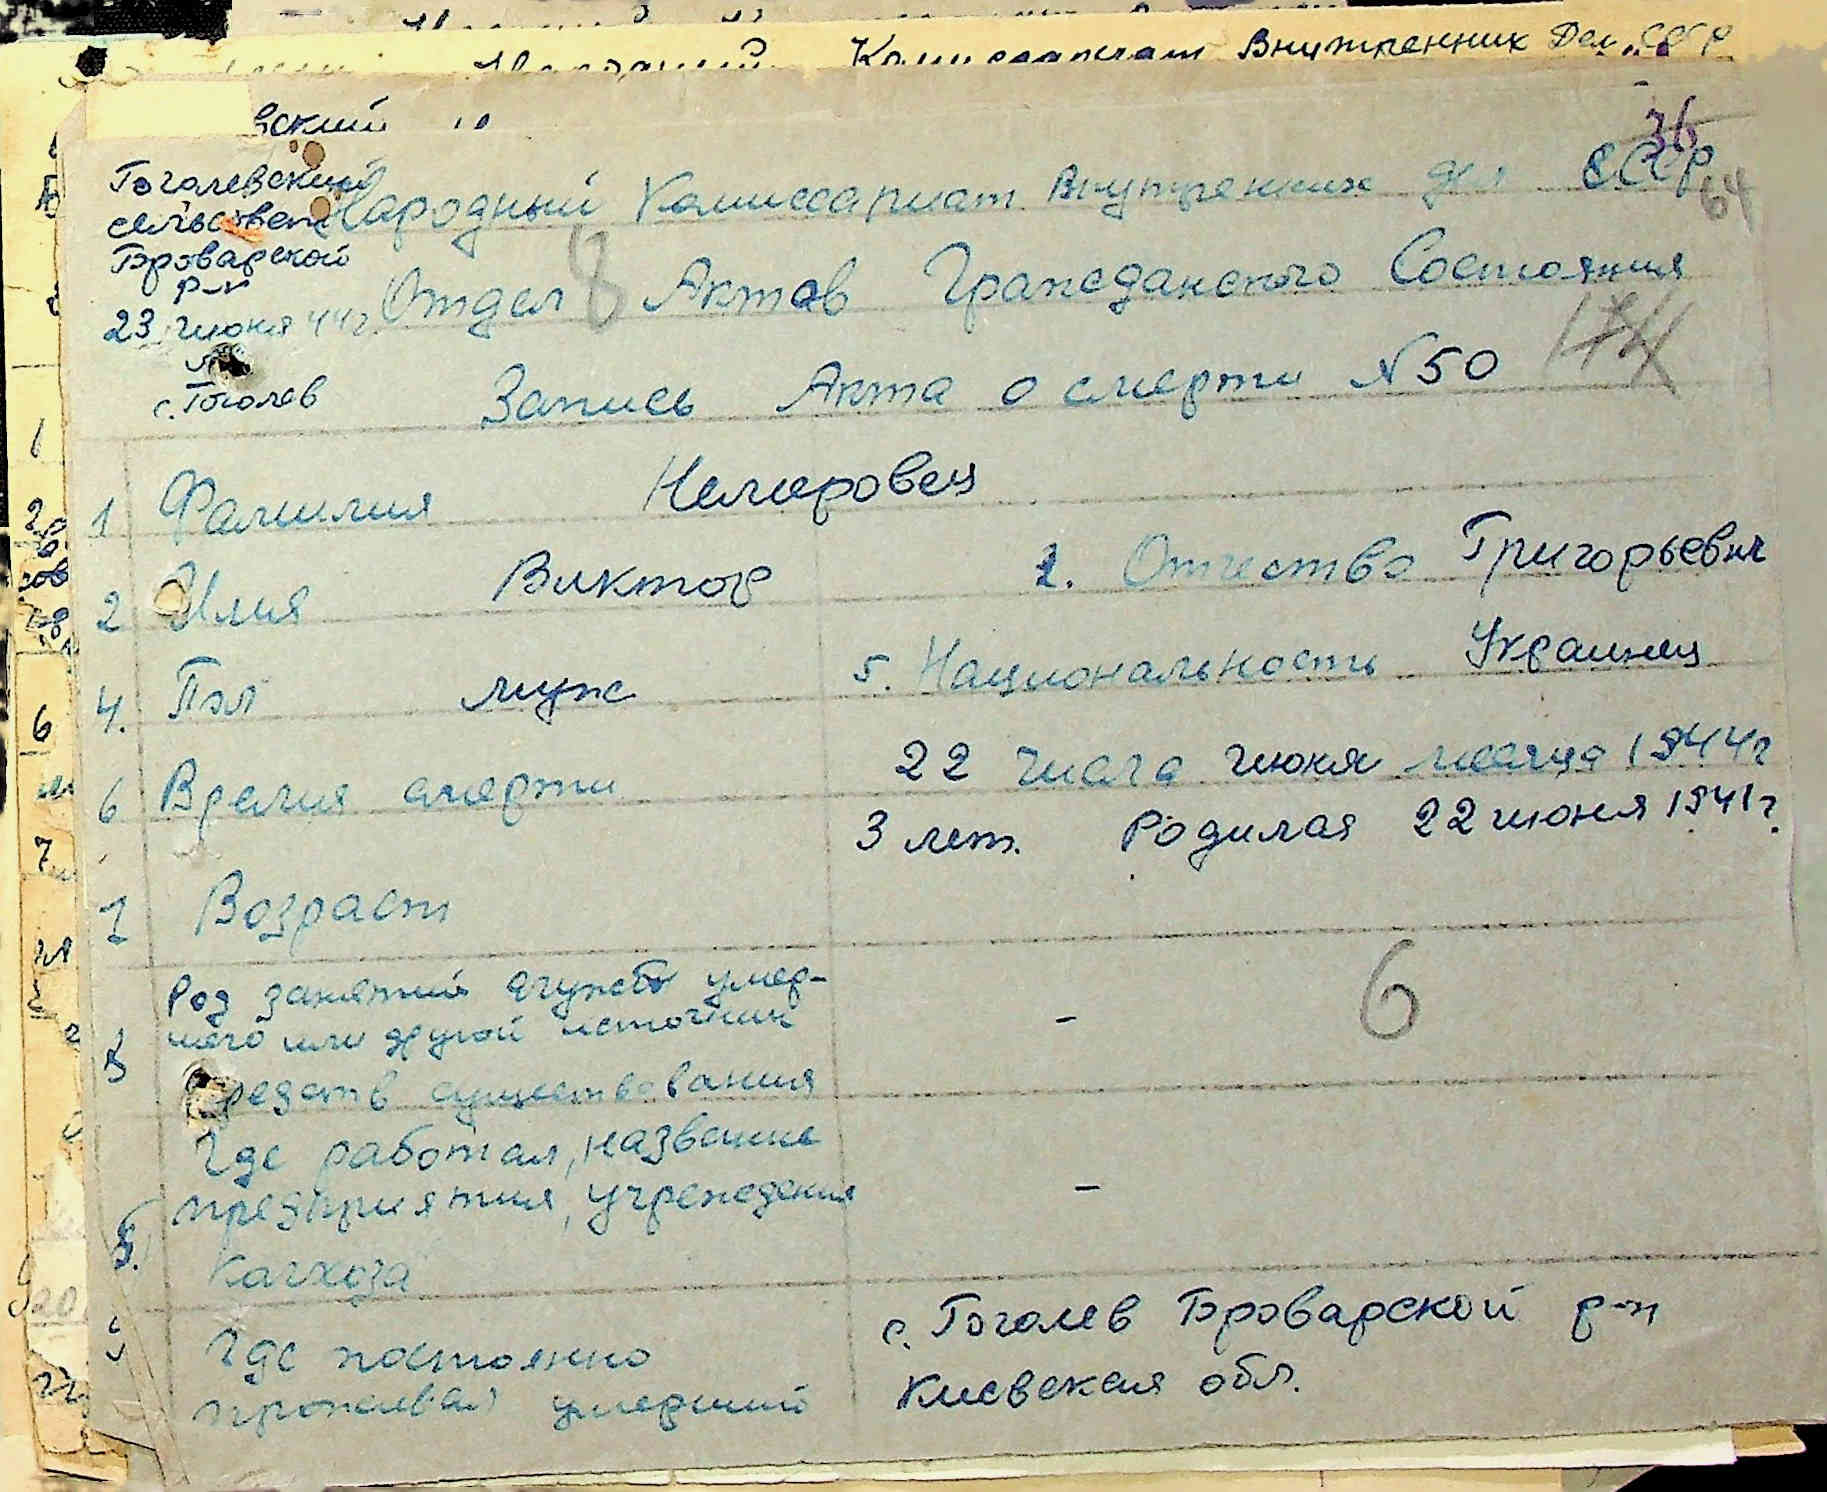 Комиссариат Внутренних Дел СССР
вский
36
64
Гоголевский
сельсовет
Броварской
р-н
23 июня 44 г.
с. Гоголев
Народный Комиссариат Внутренних Дел СССР
Отдел Актов Гражданского Состояния
8
174
Запись Акта о смерти N 50
1 Фамилия Немеровец
2 Имя Виктор 2. Отчество Григорьевич
4. Пол муж 5. Национальность Украинец
6 Время смерти 22 числа июня месяца 1944 г
3 лет. Родился 22 июня 1941 г.
7 Возраст
Род занятий службы умер-
шего или другой источник
8 средств существования
–
6
Где работал, название
предприятия, учреждения
Колхоза
–
9 Где постоянно
проживал умерший
с. Гоголев Броварской р-н
Киевская обл.